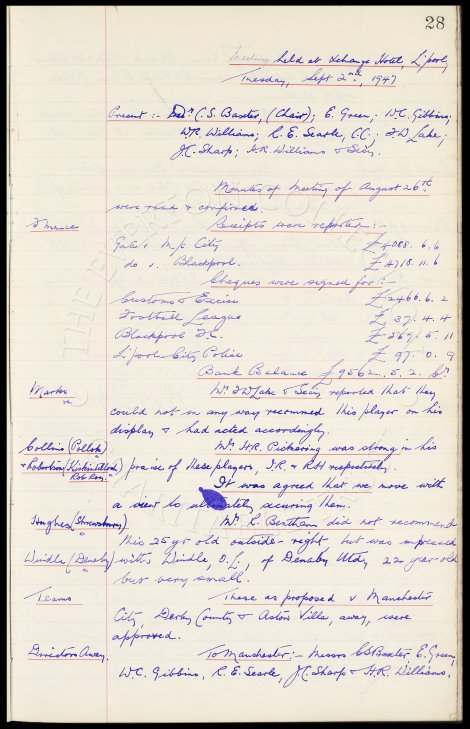 28
Meeting held at Exchange Hotel, L'pool,
Tuesday, Sept 2nd, 1947
Present :- Messrs C.S. Baxter, (Chair); E. Green; W.C. Gibbins;
W.R. Williams; R. E. Searle, C.C.; F.W. Lake;
J.C. Sharp; H.R. Williams & Secy.
Minutes of Meeting of August 26th
were read & confirmed.
Finance Receipts were reported:-
Gate v. M/c City £4088. 6. 6
do v. Blackpool. £4718. 11. 6
Cheques were signed for :-
Customs & Excise £2466. 6. 2
Football League £37. 4. 4
Blackpool F.C. £569. 5. 11
L'pool City Police £97. 0. 9
Bank Balance £9562. 5. 2. Cr
Marks Mr. F.W. Lake & Secy reported that they
could not in any way recommend this player on his
display & had acted accordingly.
Collins (Pollok) Mr. H.R. Pickering was strong in his
& Robertson (Kirkintilloch Rob Roy) praise of these players, I.R. & R.H. respectively.
It was agreed that we move with
a view to ultimately securing them.
Hughes (Shrewsbury) Mr. R. Bentham did not recommend
this 25 yr old outside-right, but was impressed
Windle (Denaby) with Windle, O.L., of Denaby Utd, 22 year old
but very small.
Teams These as proposed v Manchester
City, Derby County & Aston Villa, away, were
approved.
Directors Away. To Manchester:- Messrs CS Baxter E. Green,
W.C. Gibbins, R.E. Searle, J.C. Sharp & H.R. Williams.